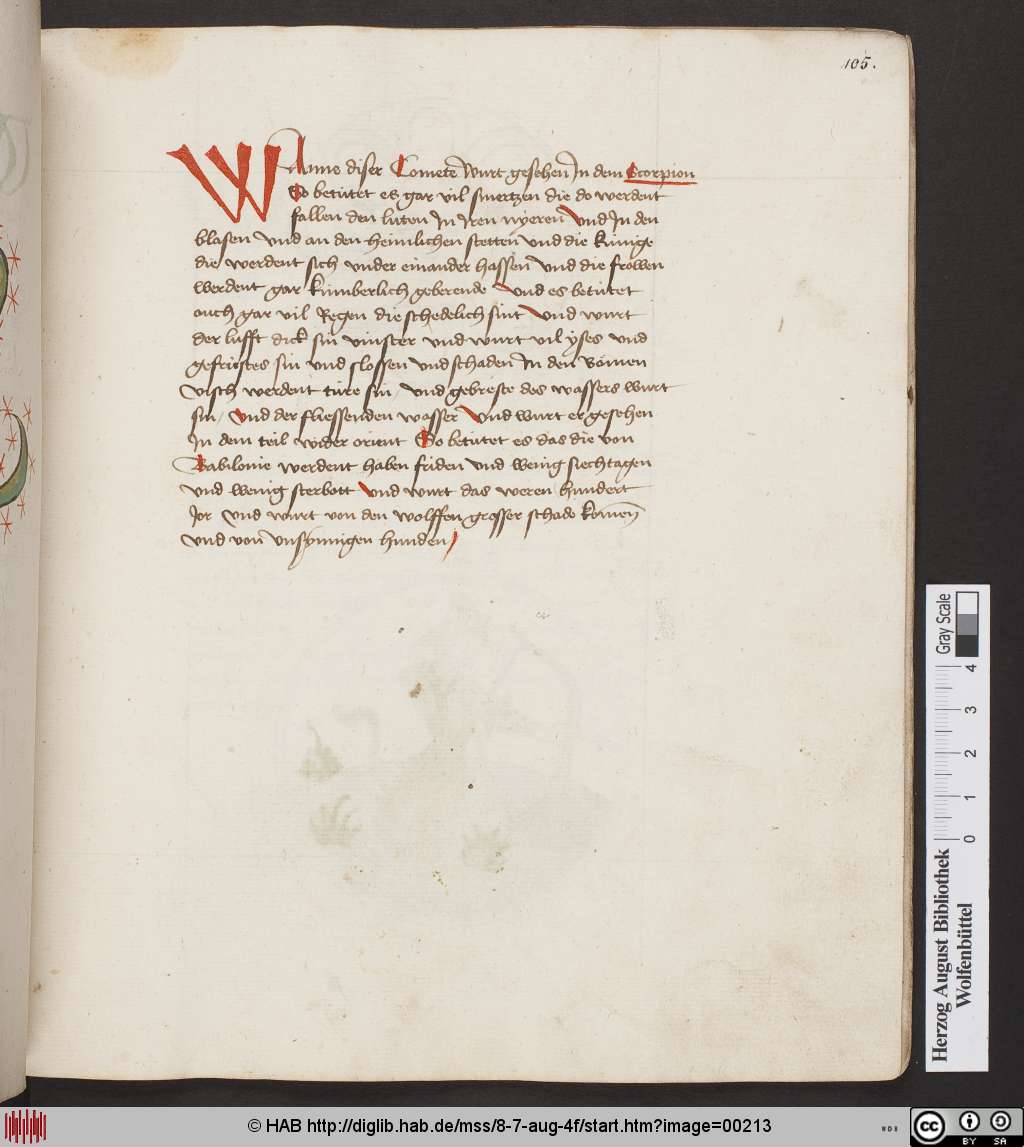 105.
WAnne diser Comete wurt gesehen In dem Scorpion
So betútet es gar vil smertzen die do werdent
fallen den lúten In Iren nyeren und In den
blasen und an den heimlichen stetten und die kúnige
die werdent sich under einander hassen und die frowen
werdent gar kúmberlich geberende und es betútet
ouch gar vil Regen die schedelich sint und wurt
der lufft dick sin vinster und wurt vil yses und
gefrustes sin und slossen und schaden In den Bómen
visch werdent túre sin / und gebreste des wassers wurt
sin / und der fliessenden wasser und wurt er gesehen
In dem teil wider orient So betútet es das die von
Babilonie werdent haben friden und wenig siechtagen
und wenig sterbott und wurt das weren hundert
Jor und wurt von den wolffen grosser schade komen
und von unsynnigen hunden /
Gray Scale
0 1 2 3 4
Herzog August Bibliothek
Wolfenbüttel
© HAB http://diglib.hab.de/mss/8-7-aug-4f/start.htm?image=00213
WDB
cc BY SA